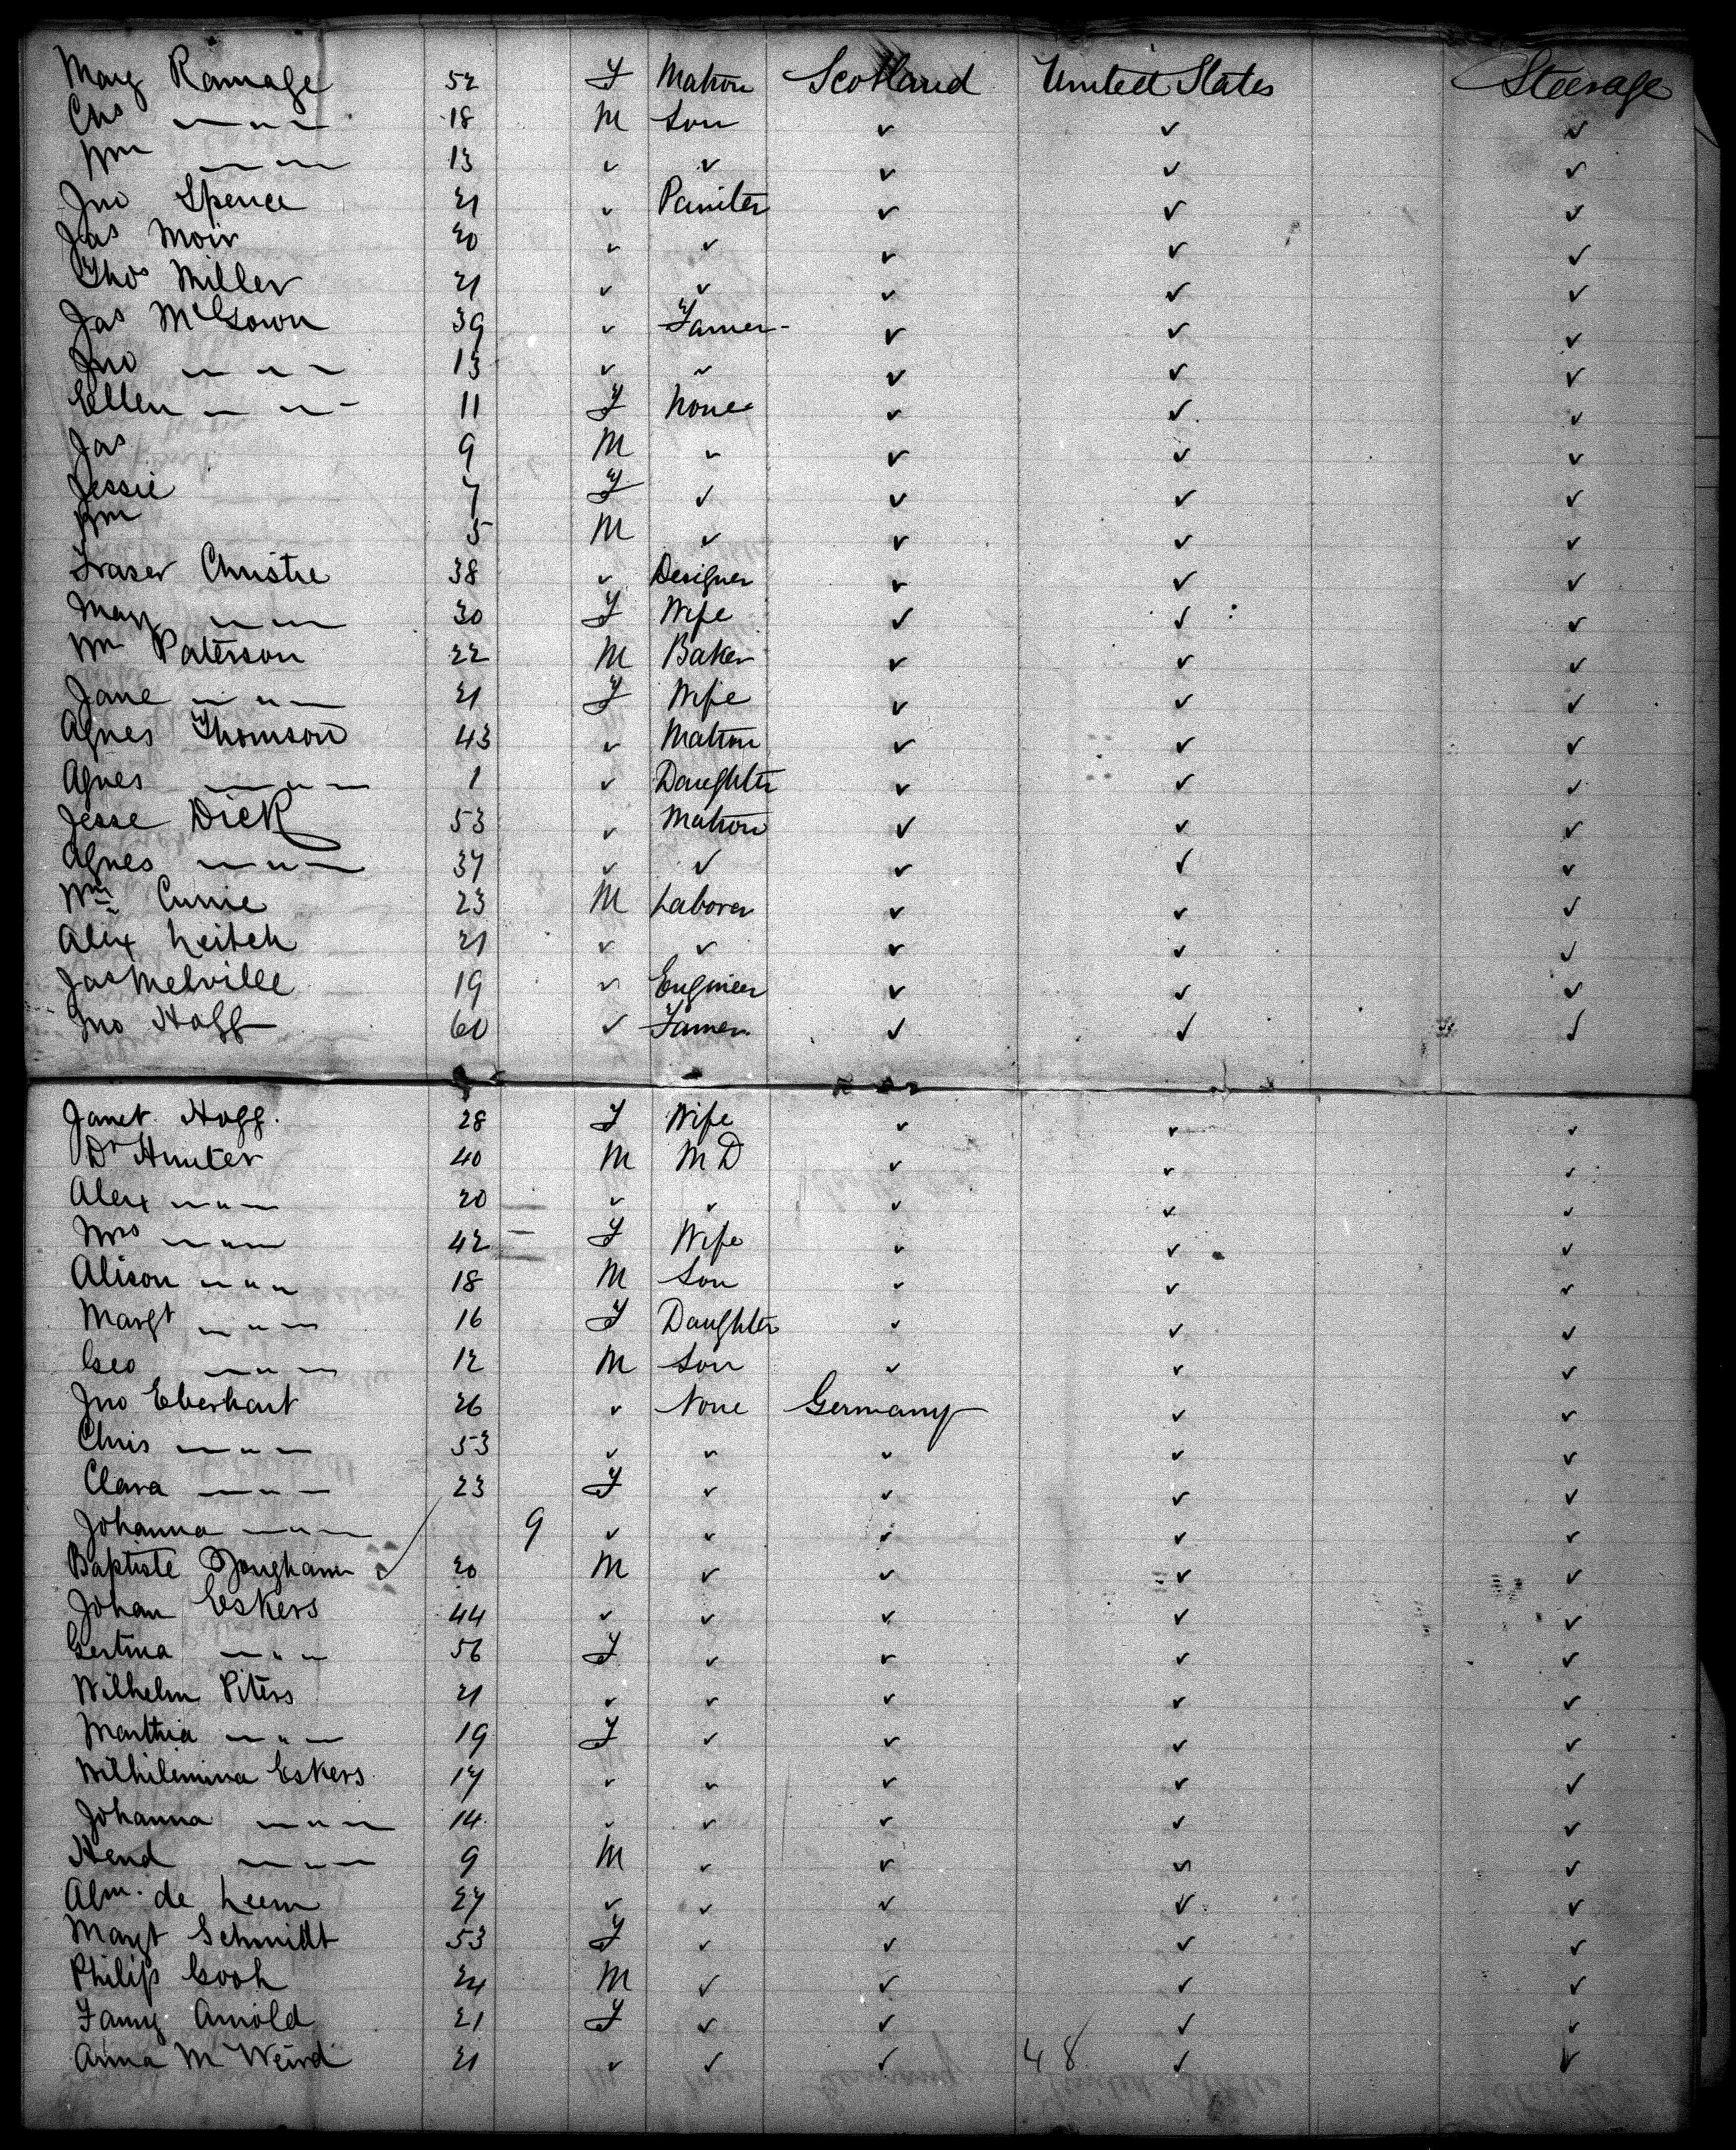 Marg Ramage 52 F Matron Scotland United States Steerage
Chs — " — 18 M Son ✓ ✓ ✓
Wm — " — 13 ✓ ✓ ✓ ✓ ✓
Jno Spence 21 ✓ Painter ✓ ✓ ✓
Jas Moir 20 ✓ ✓ ✓ ✓ ✓
Thos Miller 21 ✓ ✓ ✓ ✓ ✓
Jas McGown 39 ✓ Farmer ✓ ✓ ✓
Jno — " — 13 ✓ ✓ ✓ ✓ ✓
Ellen — " — 11 F None ✓ ✓ ✓
Jas 9 M ✓ ✓ ✓ ✓
Jessie 7 F ✓ ✓ ✓ ✓
Wm 5 M ✓ ✓ ✓ ✓
Fraser Christie 38 ✓ Designer ✓ ✓ ✓
Mary — " — 30 F Wife ✓ ✓ ✓
Wm Paterson 22 M Baker ✓ ✓ ✓
Jane — " — 21 F Wife ✓ ✓ ✓
Agnes Thomson 43 ✓ Matron ✓ ✓ ✓
Agnes — " — 1 ✓ Daughter ✓ ✓ ✓
Jesse Dick 53 ✓ Matron ✓ ✓ ✓
Agnes — " — 37 ✓ ✓ ✓ ✓ ✓
Wm Currie 23 M Laborer ✓ ✓ ✓
Alex Leitch 21 ✓ ✓ ✓ ✓ ✓
Jas Melville 19 ✓ Engineer ✓ ✓ ✓
Jno Hogg 60 ✓ Farmer ✓ ✓ ✓
Janet Hogg 28 F Wife ✓ ✓ ✓
Dr Hunter 40 M MD ✓ ✓ ✓
Alex — " — 20 ✓ ✓ ✓ ✓ ✓
Mrs — " — 42 F Wife ✓ ✓ ✓
Alison — " — 18 M Son ✓ ✓ ✓
Margt — " — 16 F Daughter ✓ ✓ ✓
Geo — " — 12 M Son ✓ ✓ ✓
Jno Eberhart 26 ✓ None Germany ✓ ✓
Chris — " — 53 ✓ ✓ ✓ ✓ ✓
Clara — " — 23 F ✓ ✓ ✓ ✓
Johanna — " — 9 ✓ ✓ ✓ ✓ ✓
Baptiste 20 M ✓ ✓ ✓ ✓
Johan Eskers 44 ✓ ✓ ✓ ✓ ✓
Gertina — " — 56 F ✓ ✓ ✓ ✓
Wilhelm Piters 21 ✓ ✓ ✓ ✓ ✓
Marthia — " — 19 F ✓ ✓ ✓ ✓
Wilhilimina Eskers 17 ✓ ✓ ✓ ✓ ✓
Johanna — " — 14 ✓ ✓ ✓ ✓ ✓
Hend — " — 9 M ✓ ✓ ✓ ✓
Alm. de Leem 27 ✓ ✓ ✓ ✓ ✓
Margt Schmidt 53 F ✓ ✓ ✓ ✓
Philip Gooh 24 M ✓ ✓ ✓ ✓
Fanny Arnold 21 F ✓ ✓ ✓ ✓
Anna M Weird 21 ✓ ✓ ✓ 48 ✓ ✓